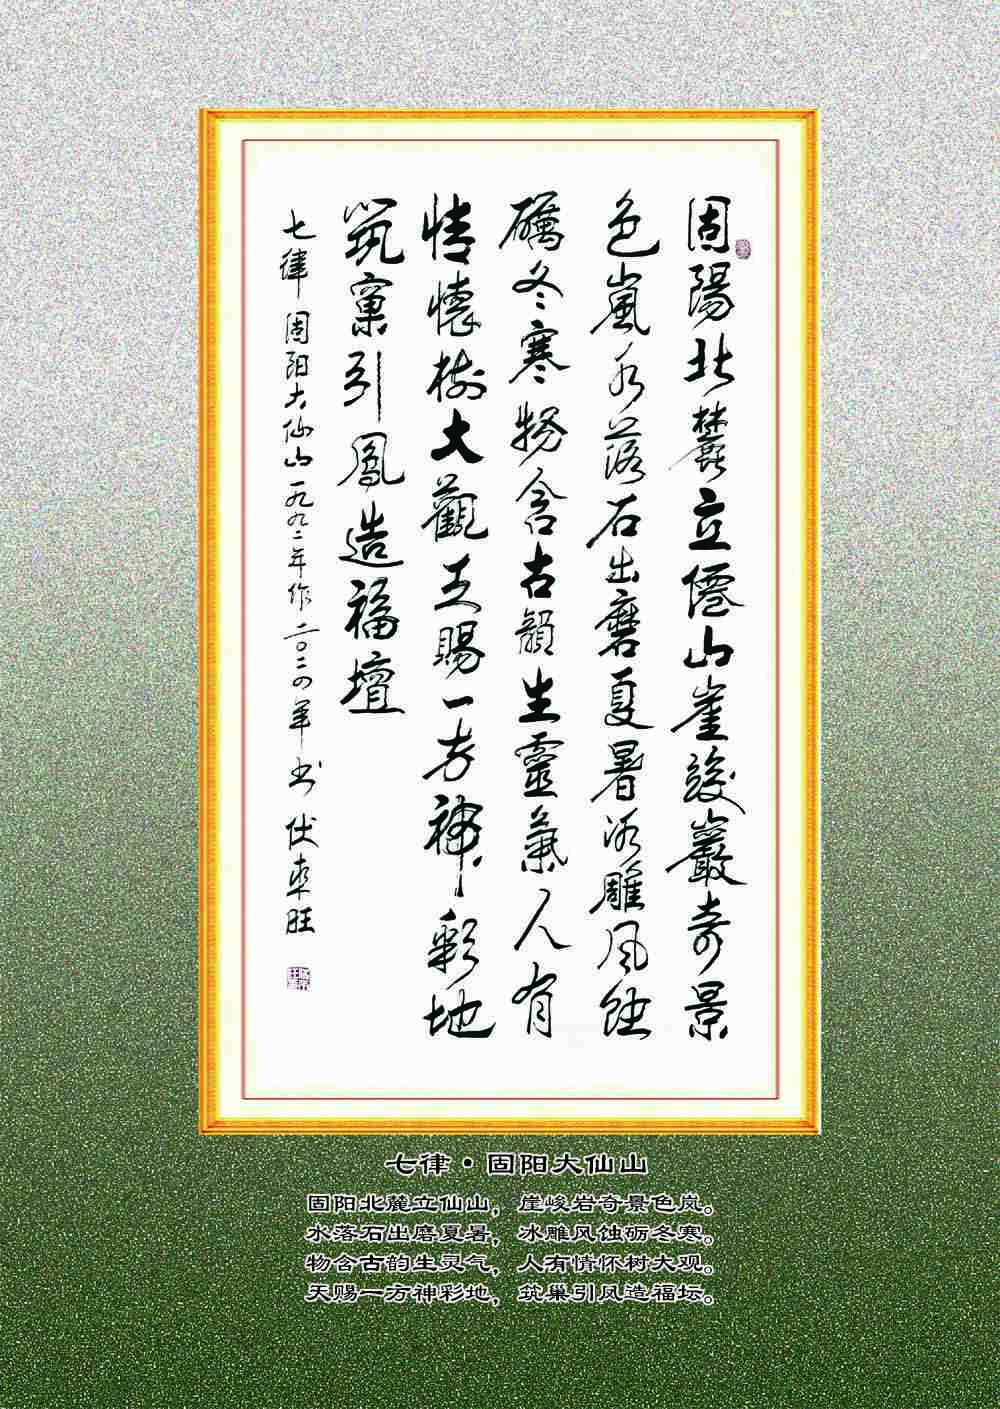 固陽北麓立僊山崖峻巖奇景
色嵐水落石出磨夏暑冰雕風蝕
礪冬寒物含古韻生靈氣人有
情懷樹大觀天賜一方神彩地
筑窠引鳳造福壇
七律 固阳大仙山 一九九二年作 二〇二四年书 伏来旺
七律·固阳大仙山
固阳北麓立仙山，崖峻岩奇景色岚。
水落石出磨夏暑，冰雕风蚀砺冬寒。
物含古韵生灵气，人有情怀树大观。
天赐一方神彩地，筑巢引凤造福坛。